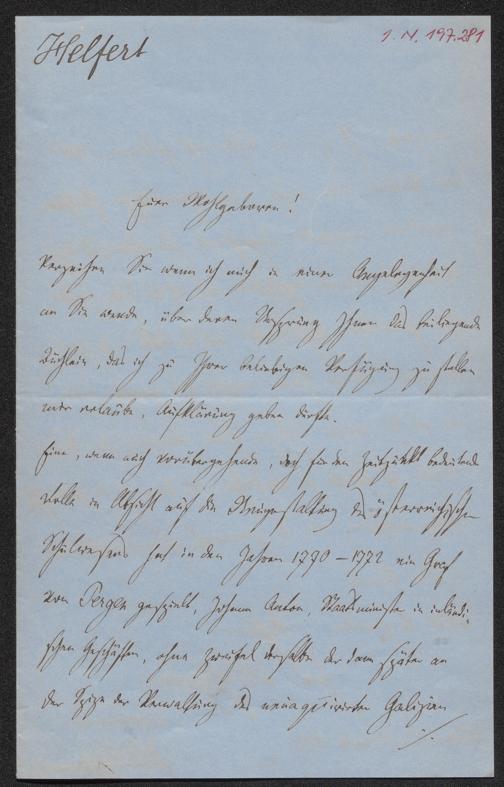 Helfert
I. N. 197.281
Euer Wohlgeboren!
Verzeihen Sie wenn ich mich in einer Angelegenheit
an Sie wende, über deren Ursprung Ihnen das beiliegende
Büchlein, das ich zu Ihrer beliebigen Verfügung zu stellen
mir erlaube, Aufklärung geben dürfte.
Eine, wenn auch vorübergehende, doch für den Zeitpunkt bedeutende
Rolle in Absicht auf die Neugestaltung des österreichischen
Schulwesens hat in den Jahren 1770 – 1772 ein Graf
von Pergen gespielt, Johann Anton, Staatsminister in inländi-
schen Geschäften, ohne Zweifel derselbe der dann später an
der Spize der Verwaltung des neuaquirirten Galizien
./.